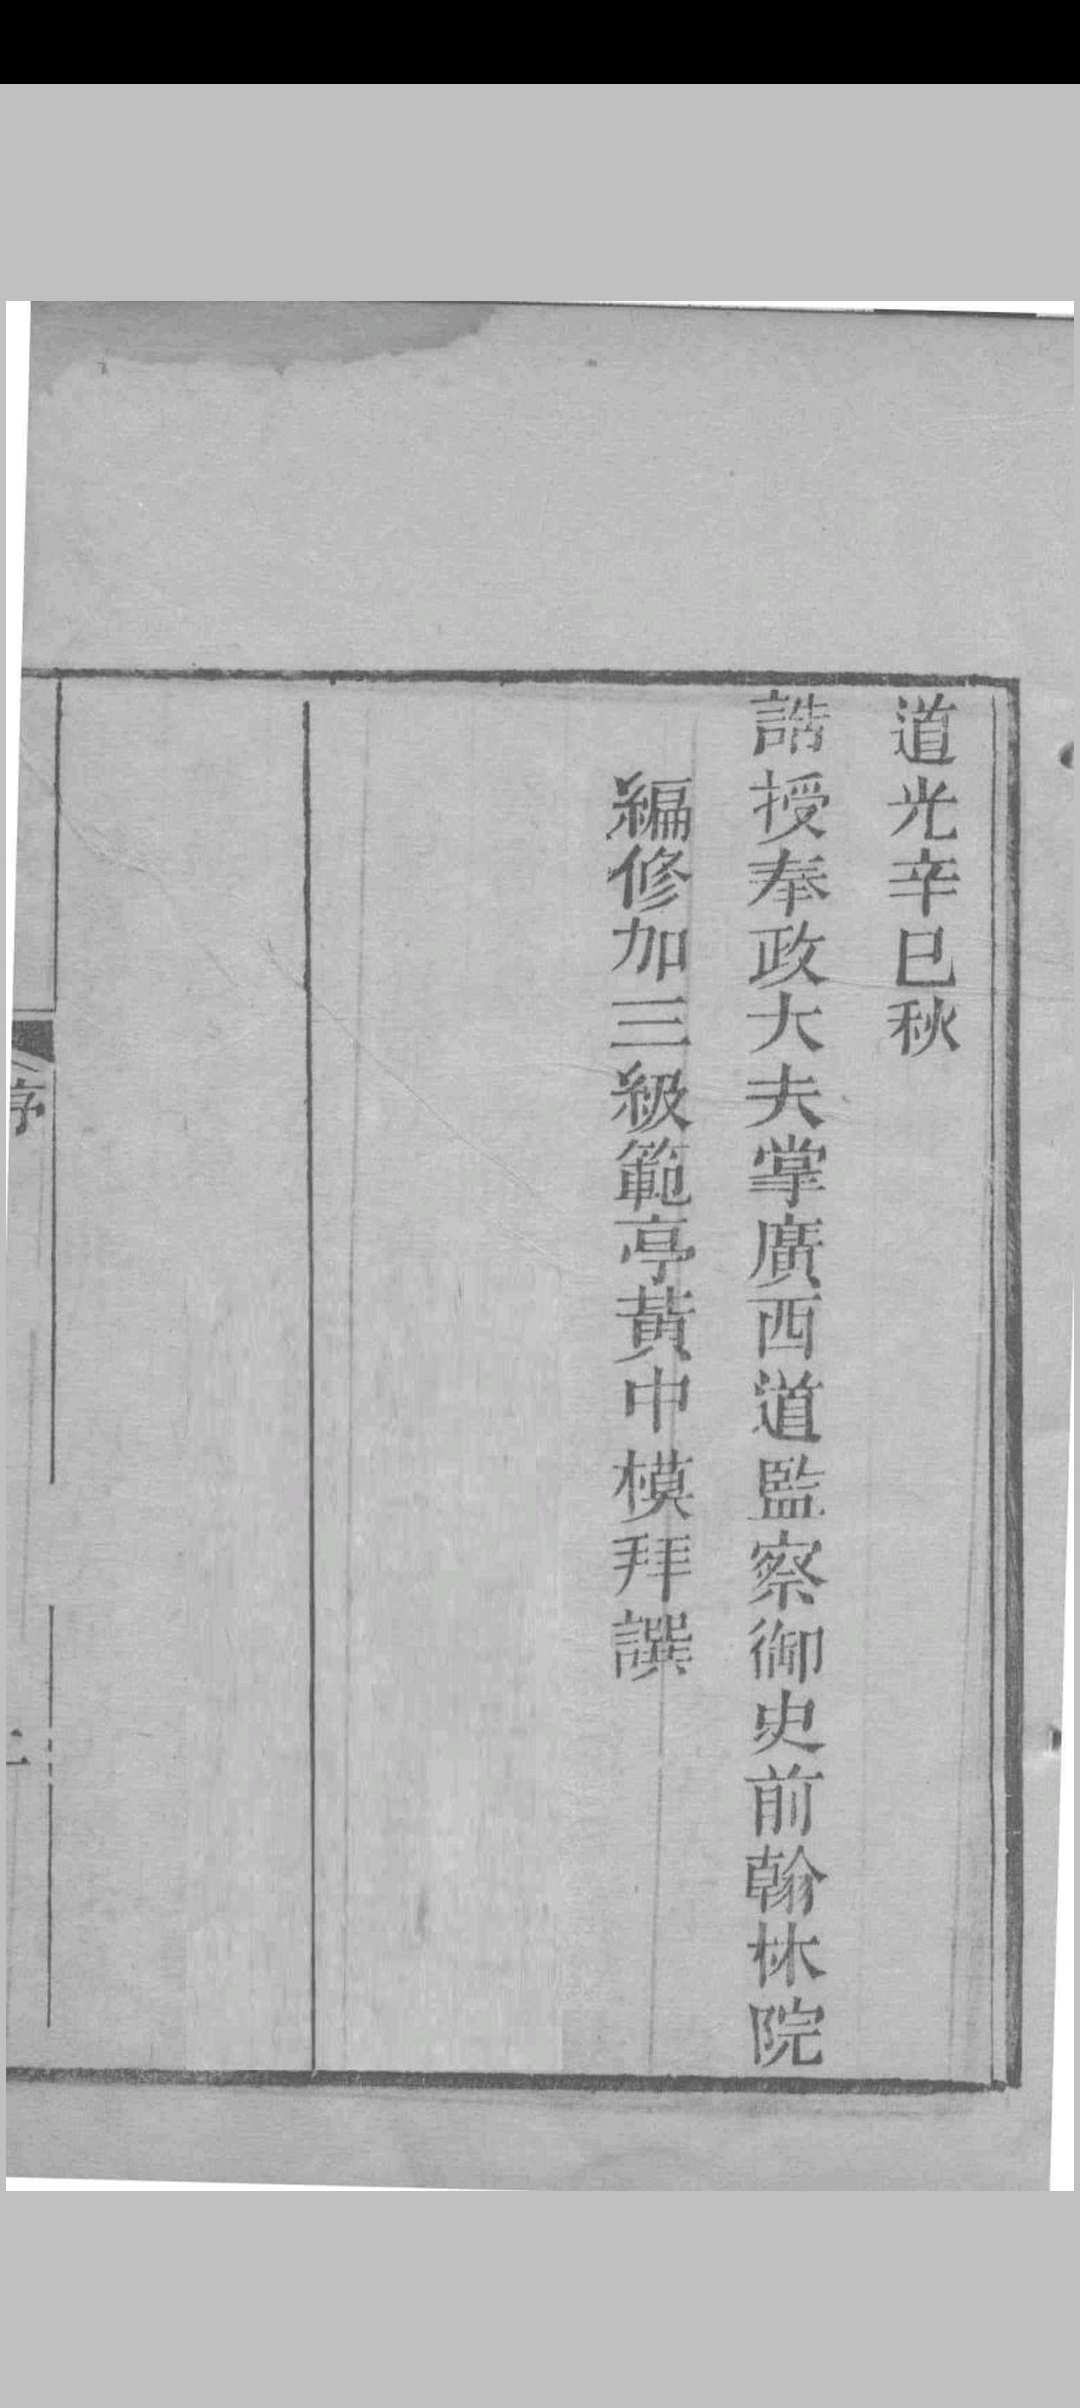 道光辛巳秋
誥授奉政大夫掌廣西道監察御史前翰林院
編修加三級範亭黃中模拜譔
序